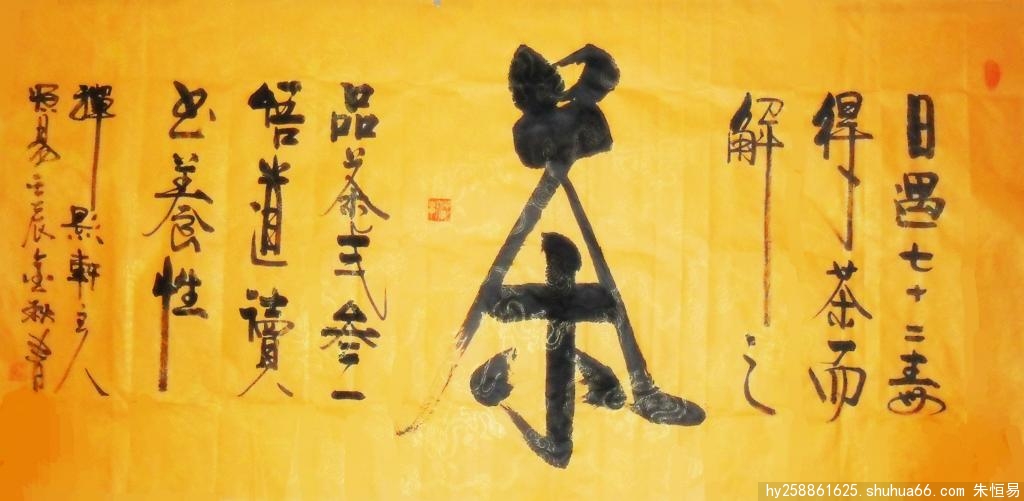 日遇七十二毒
得茶而
解之
茶
品茶
悟道讀
书養性
禪影軒主人
恒易壬辰金秋
hy258861625.shuhua66.com 朱恒易